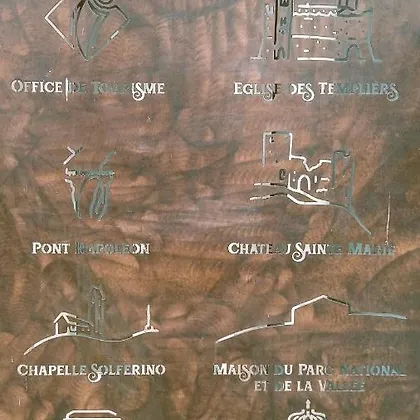 OFFICE DE TOURISME
EGLISE DES TEMPLIERS
PONT NAPOLEON
CHATEAU SAINTE MARIE
CHAPELLE SOLFERINO
MAISON DU PARC NATIONAL
ET DE LA VALLEE